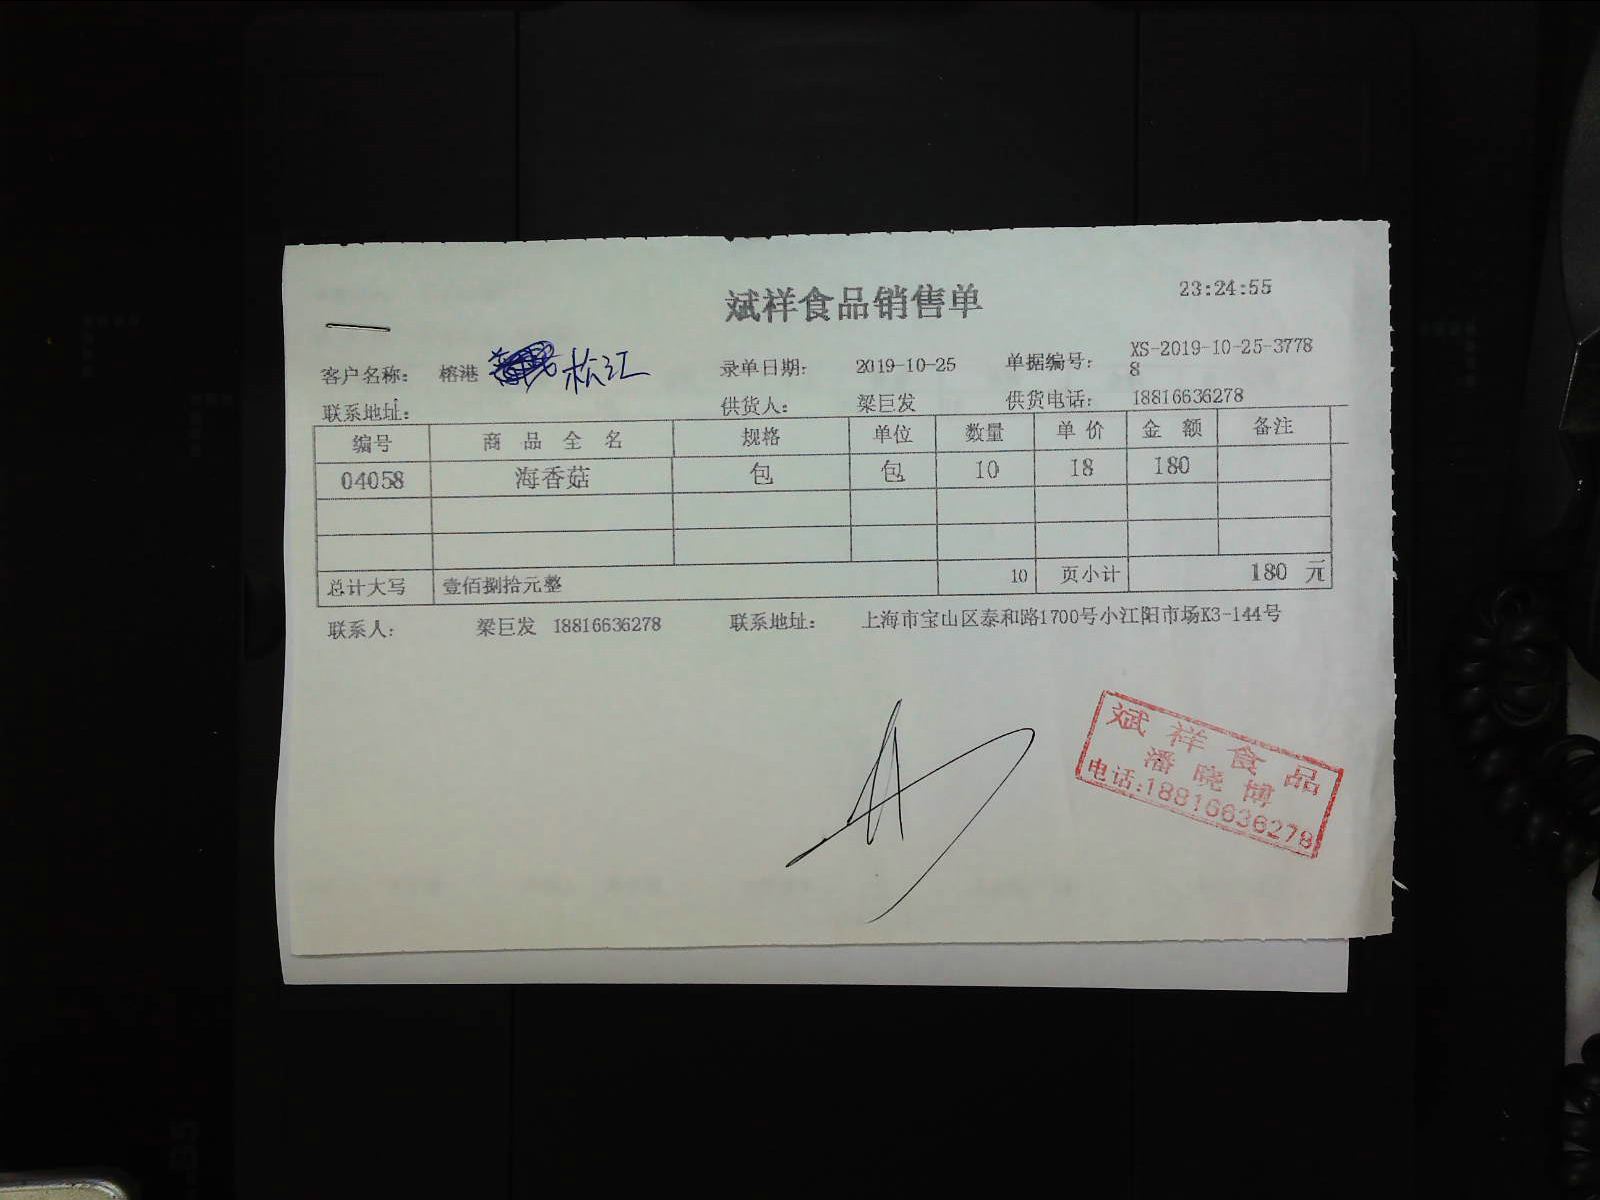 斌祥食品销售单 23:24:55
客户名称: 榕港 松江 录单日期: 2019-10-25 单据编号: XS-2019-10-25-3778
8
联系地址: 供货人: 梁巨发 供货电话: 18816636278
编号 商品全名 规格 单位 数量 单价 金额 备注
04058 海香菇 包 包 10 18 180
总计大写 壹佰捌拾元整 10 页小计 180 元
联系人: 梁巨发 18816636278 联系地址: 上海市宝山区泰和路1700号小江阳市场K3-144号
斌祥食品
潘晓博
电话:18816636278